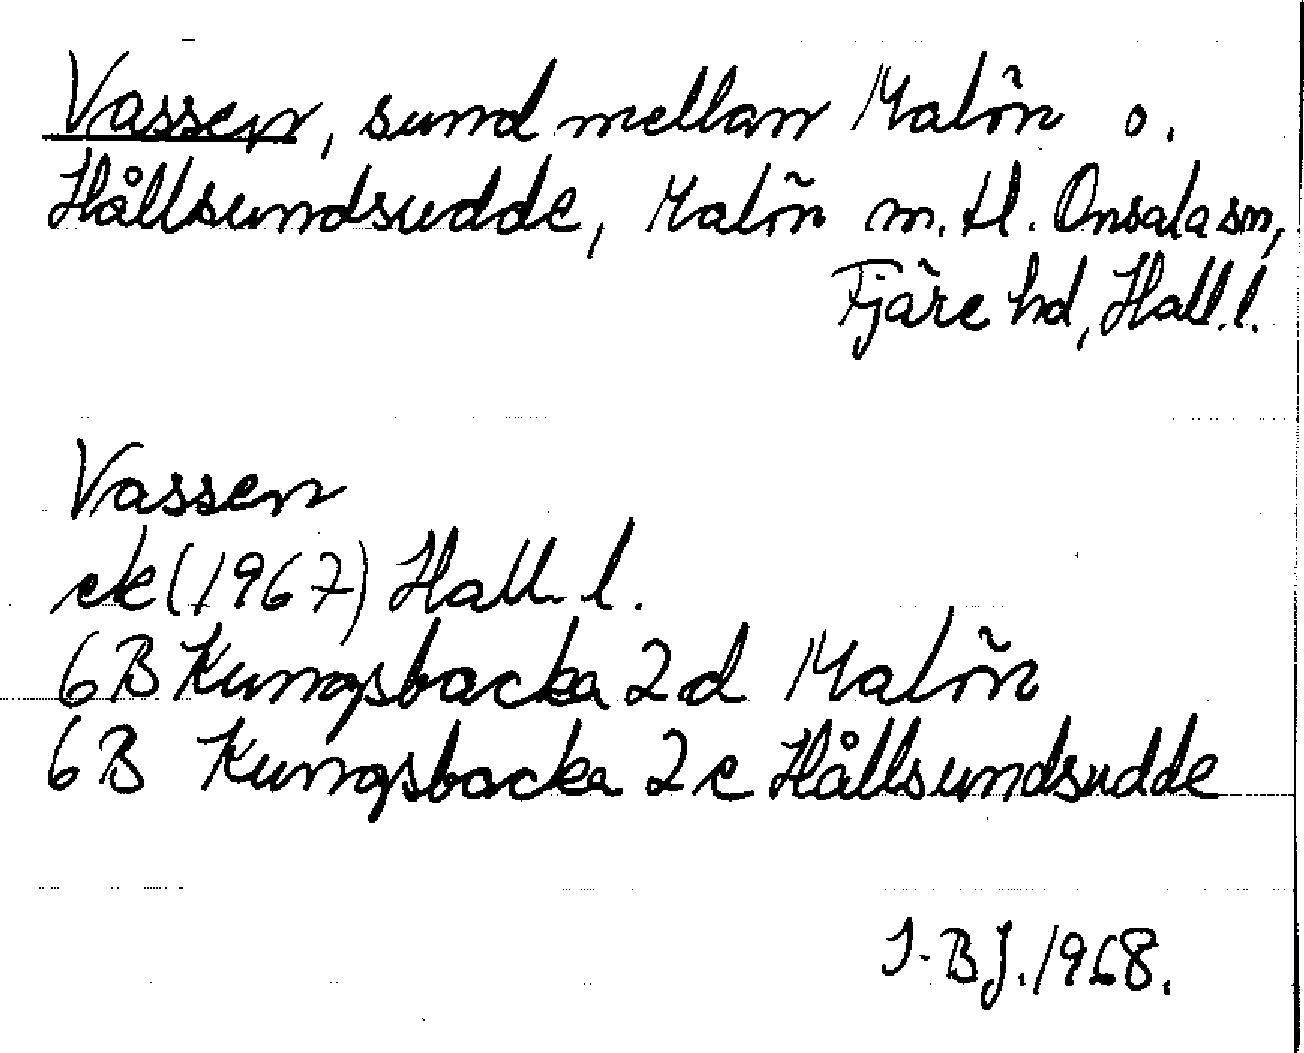 Vassen, sund mellan Malön o.
Hållsundsudde, Malön m. fl. Onsala sn,
Fjäre hd, Hall. l.
Vassen
ek (1967) Hall. l.
6B Kungsbacka 2d Malön
6B Kungsbacka 2c Hållsundsudde
I-BJ. 1968.